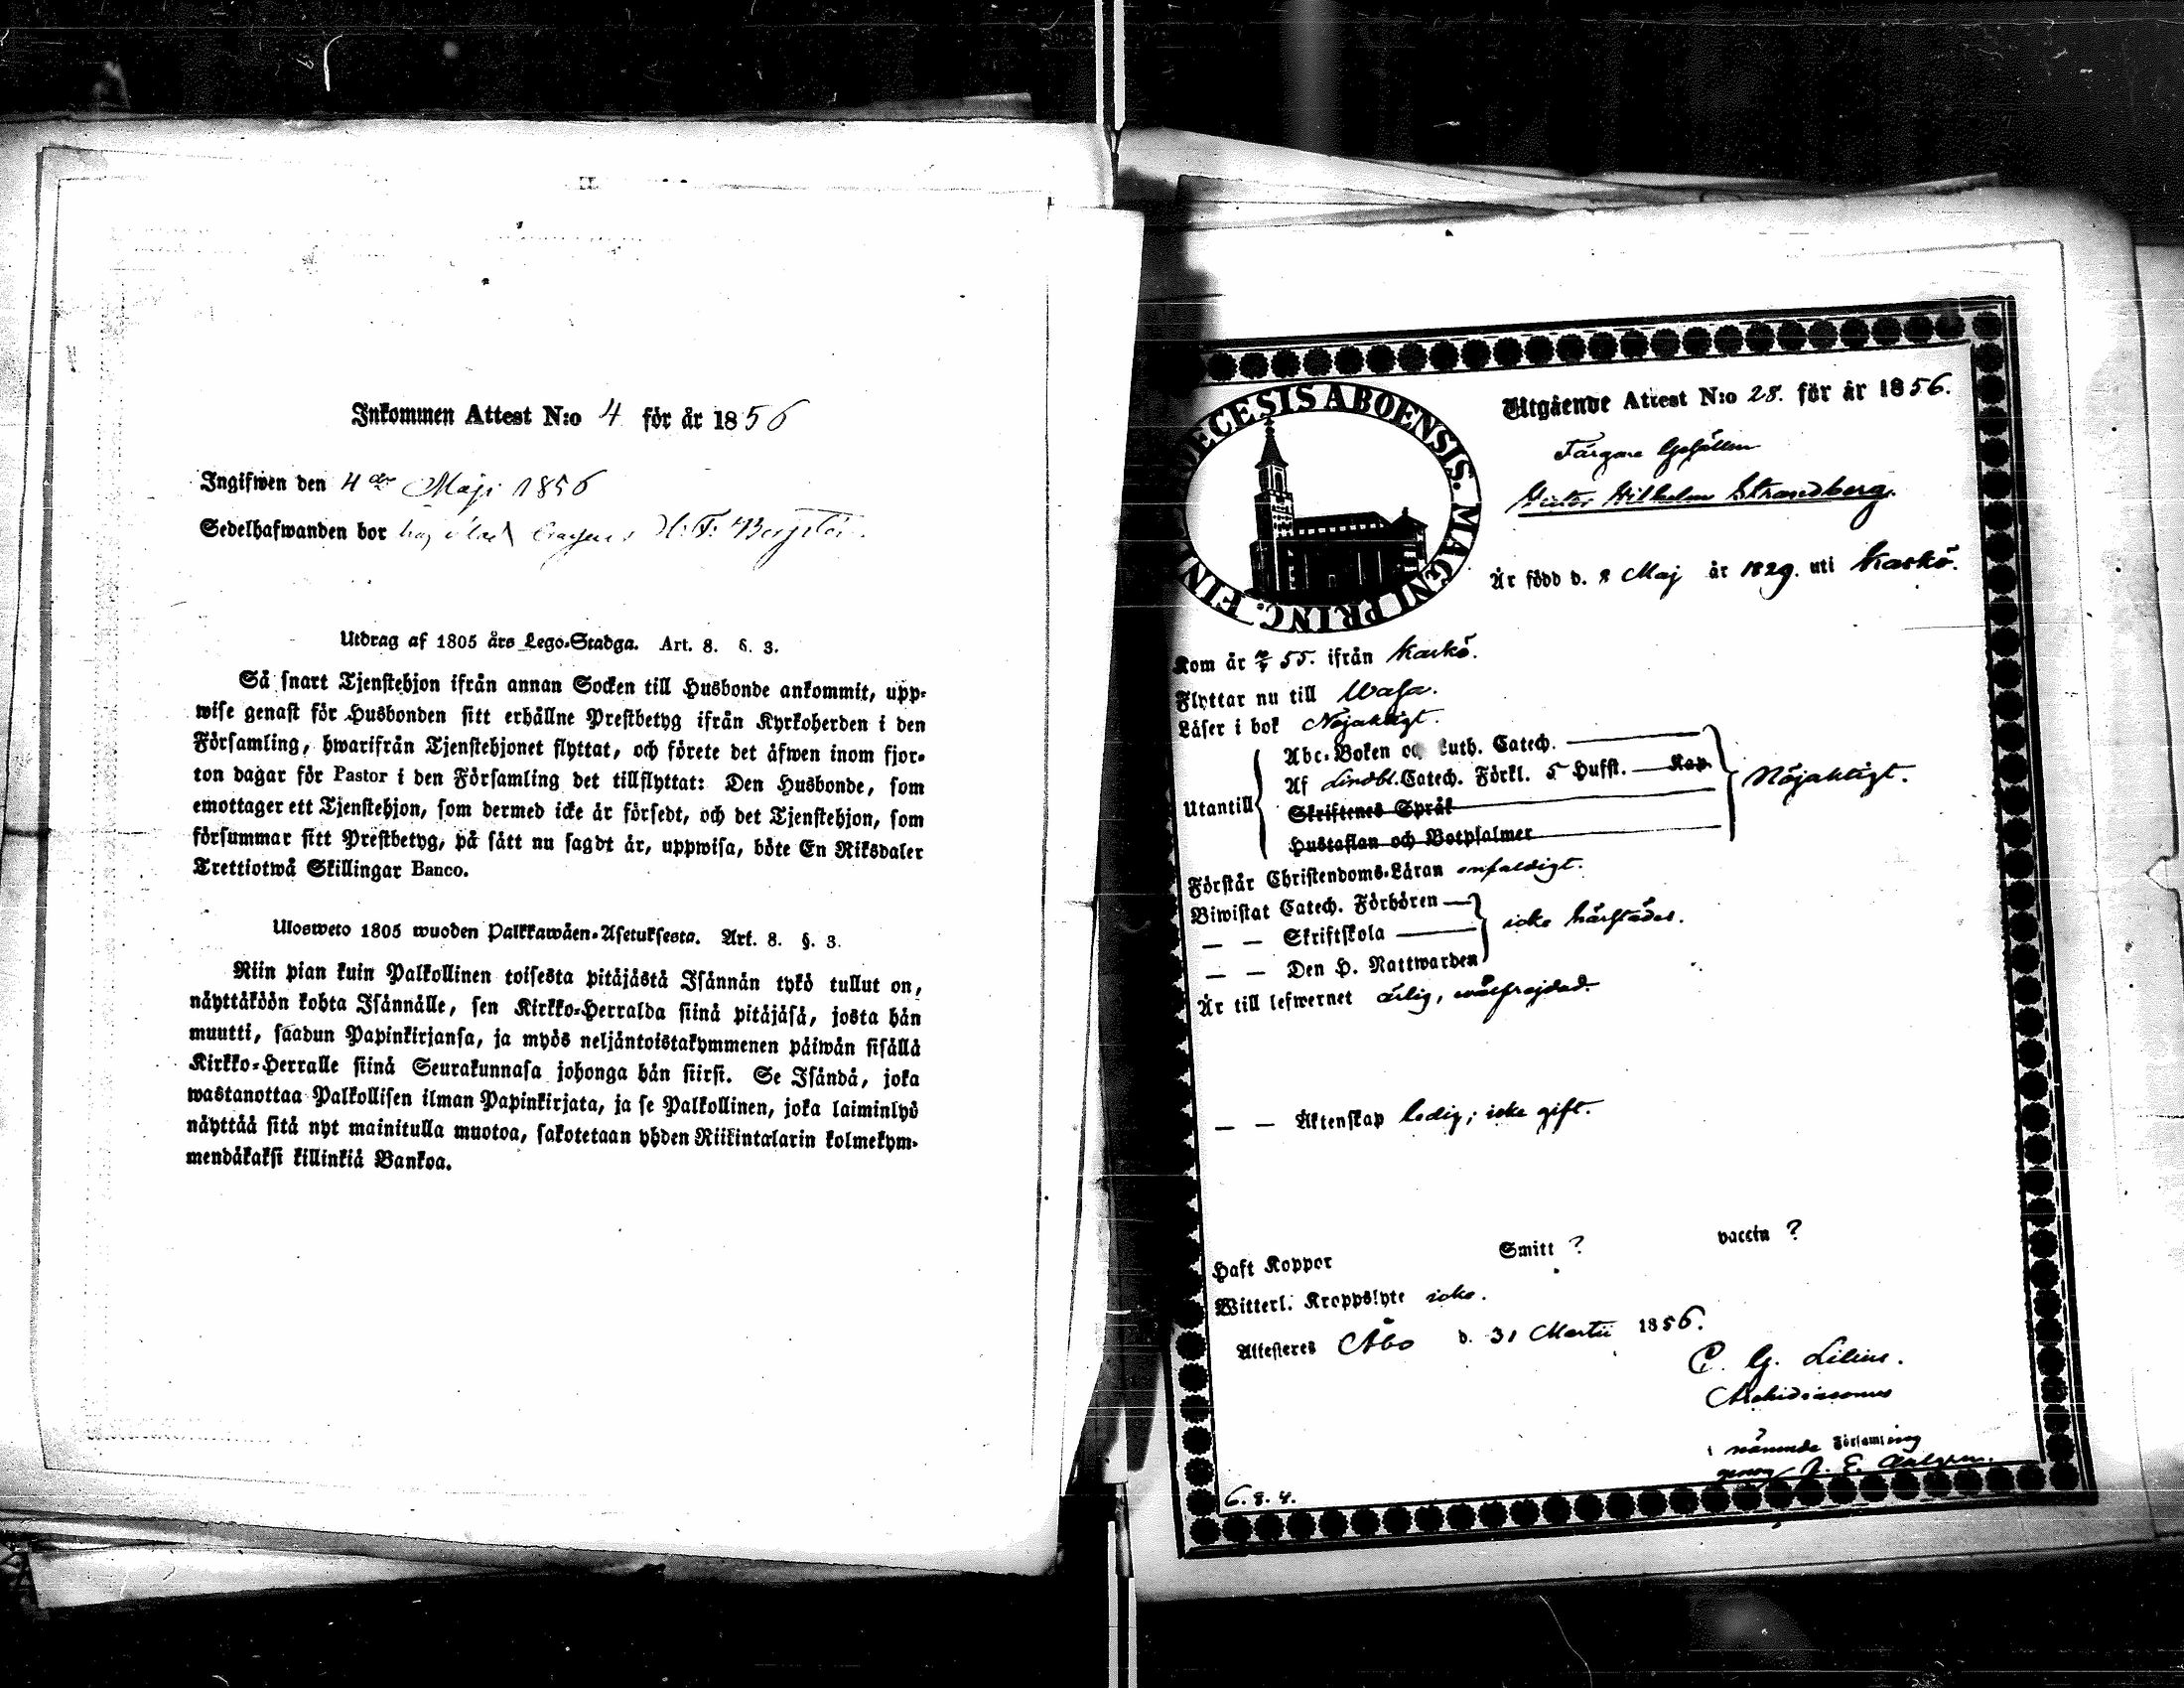 Inkommen Attest N:o 4 för år 1856
Ingifwen den 4de Maji 1856
Sedelhafwanden bor hos H: F:
Utdrag af 1805 års Lego-Stadga. Art. 8. §. 3.
Så snart Tjenstehjon ifrån annan Socken till Husbonde ankommit, upp-
wise genast för Husbonden sitt erhållne Prestbetyg ifrån Kyrkoherden i den
Församling, hwarifrån Tjenstehjonet flyttat, och förete det äfwen inom fjor-
ton dagar för Pastor i den Församling det tillflyttat: Den Husbonde, som
emottager ett Tjenstehjon, som dermed icke är försedt, och det Tjenstehjon, som
försummar sitt Prestbetyg, på sätt nu sagdt är, uppwisa, böte En Riksdaler
Trettiotwå Skillingar Banco.
Ulosweto 1805 wuoden Palkkawäen-Asetuksesta. Art. 8. §. 3.
Niin pian kuin Palkollinen toisesta pitäjästä Isännän tykö tullut on,
näyttäköön kohta Isännälle, sen Kirkko-Herralda siinä pitäjäsä, josta hän
muutti, saadun Papinkirjansa, ja myös neljäntoistakymmenen päiwän sisällä
Kirkko-Herralle siinä Seurakunnasa johonga hän siirsi. Se Isändä, joka
wastanottaa Palkollisen ilman Papinkirjata, ja se Palkollinen, joka laiminlyö
näyttää sitä nyt mainitulla muotoa, sakotetaan yhden Riikintalarin kolmekym-
mendäkaksi killinkiä Bankoa.
DIOECESIS ABOENSIS. MAGNI PRINC. FIN
Utgående Attest N:o 28. för år 1856.
Färgare Gesällen
Victor Wilhelm Strandberg.
Är född d. 8 Maj år 1829. uti Kaskö.
Kom år 55. ifrån Kaskö.
Flyttar nu till Wasa.
Läser i bok Nöjaktigt.
Utantill
Abc-Boken och Luth. Catech.
Af Lindbl. Catech. Förkl. 5 Hufst. Kap.
Skriftenes Språk
Hustaflan och Botpsalmer
Nöjaktigt.
Förstår Christendoms-Läran enfaldigt.
Biwistat Catech. Förhören
— — Skriftskola
— — Den H. Nattwarden
icke härstädes.
Är till lefwernet ärlig, wälfrejdad.
— — Äktenskap ledig; icke gift.
Haft Koppor Smitt ? vaccin ?
Witterl. Kroppslyte icke.
Attesteres Åbo d. 31 Martii 1856.
C. G. Lilius.
Archidiaconus
i nämnde Församling
genom
6. 8. 4.